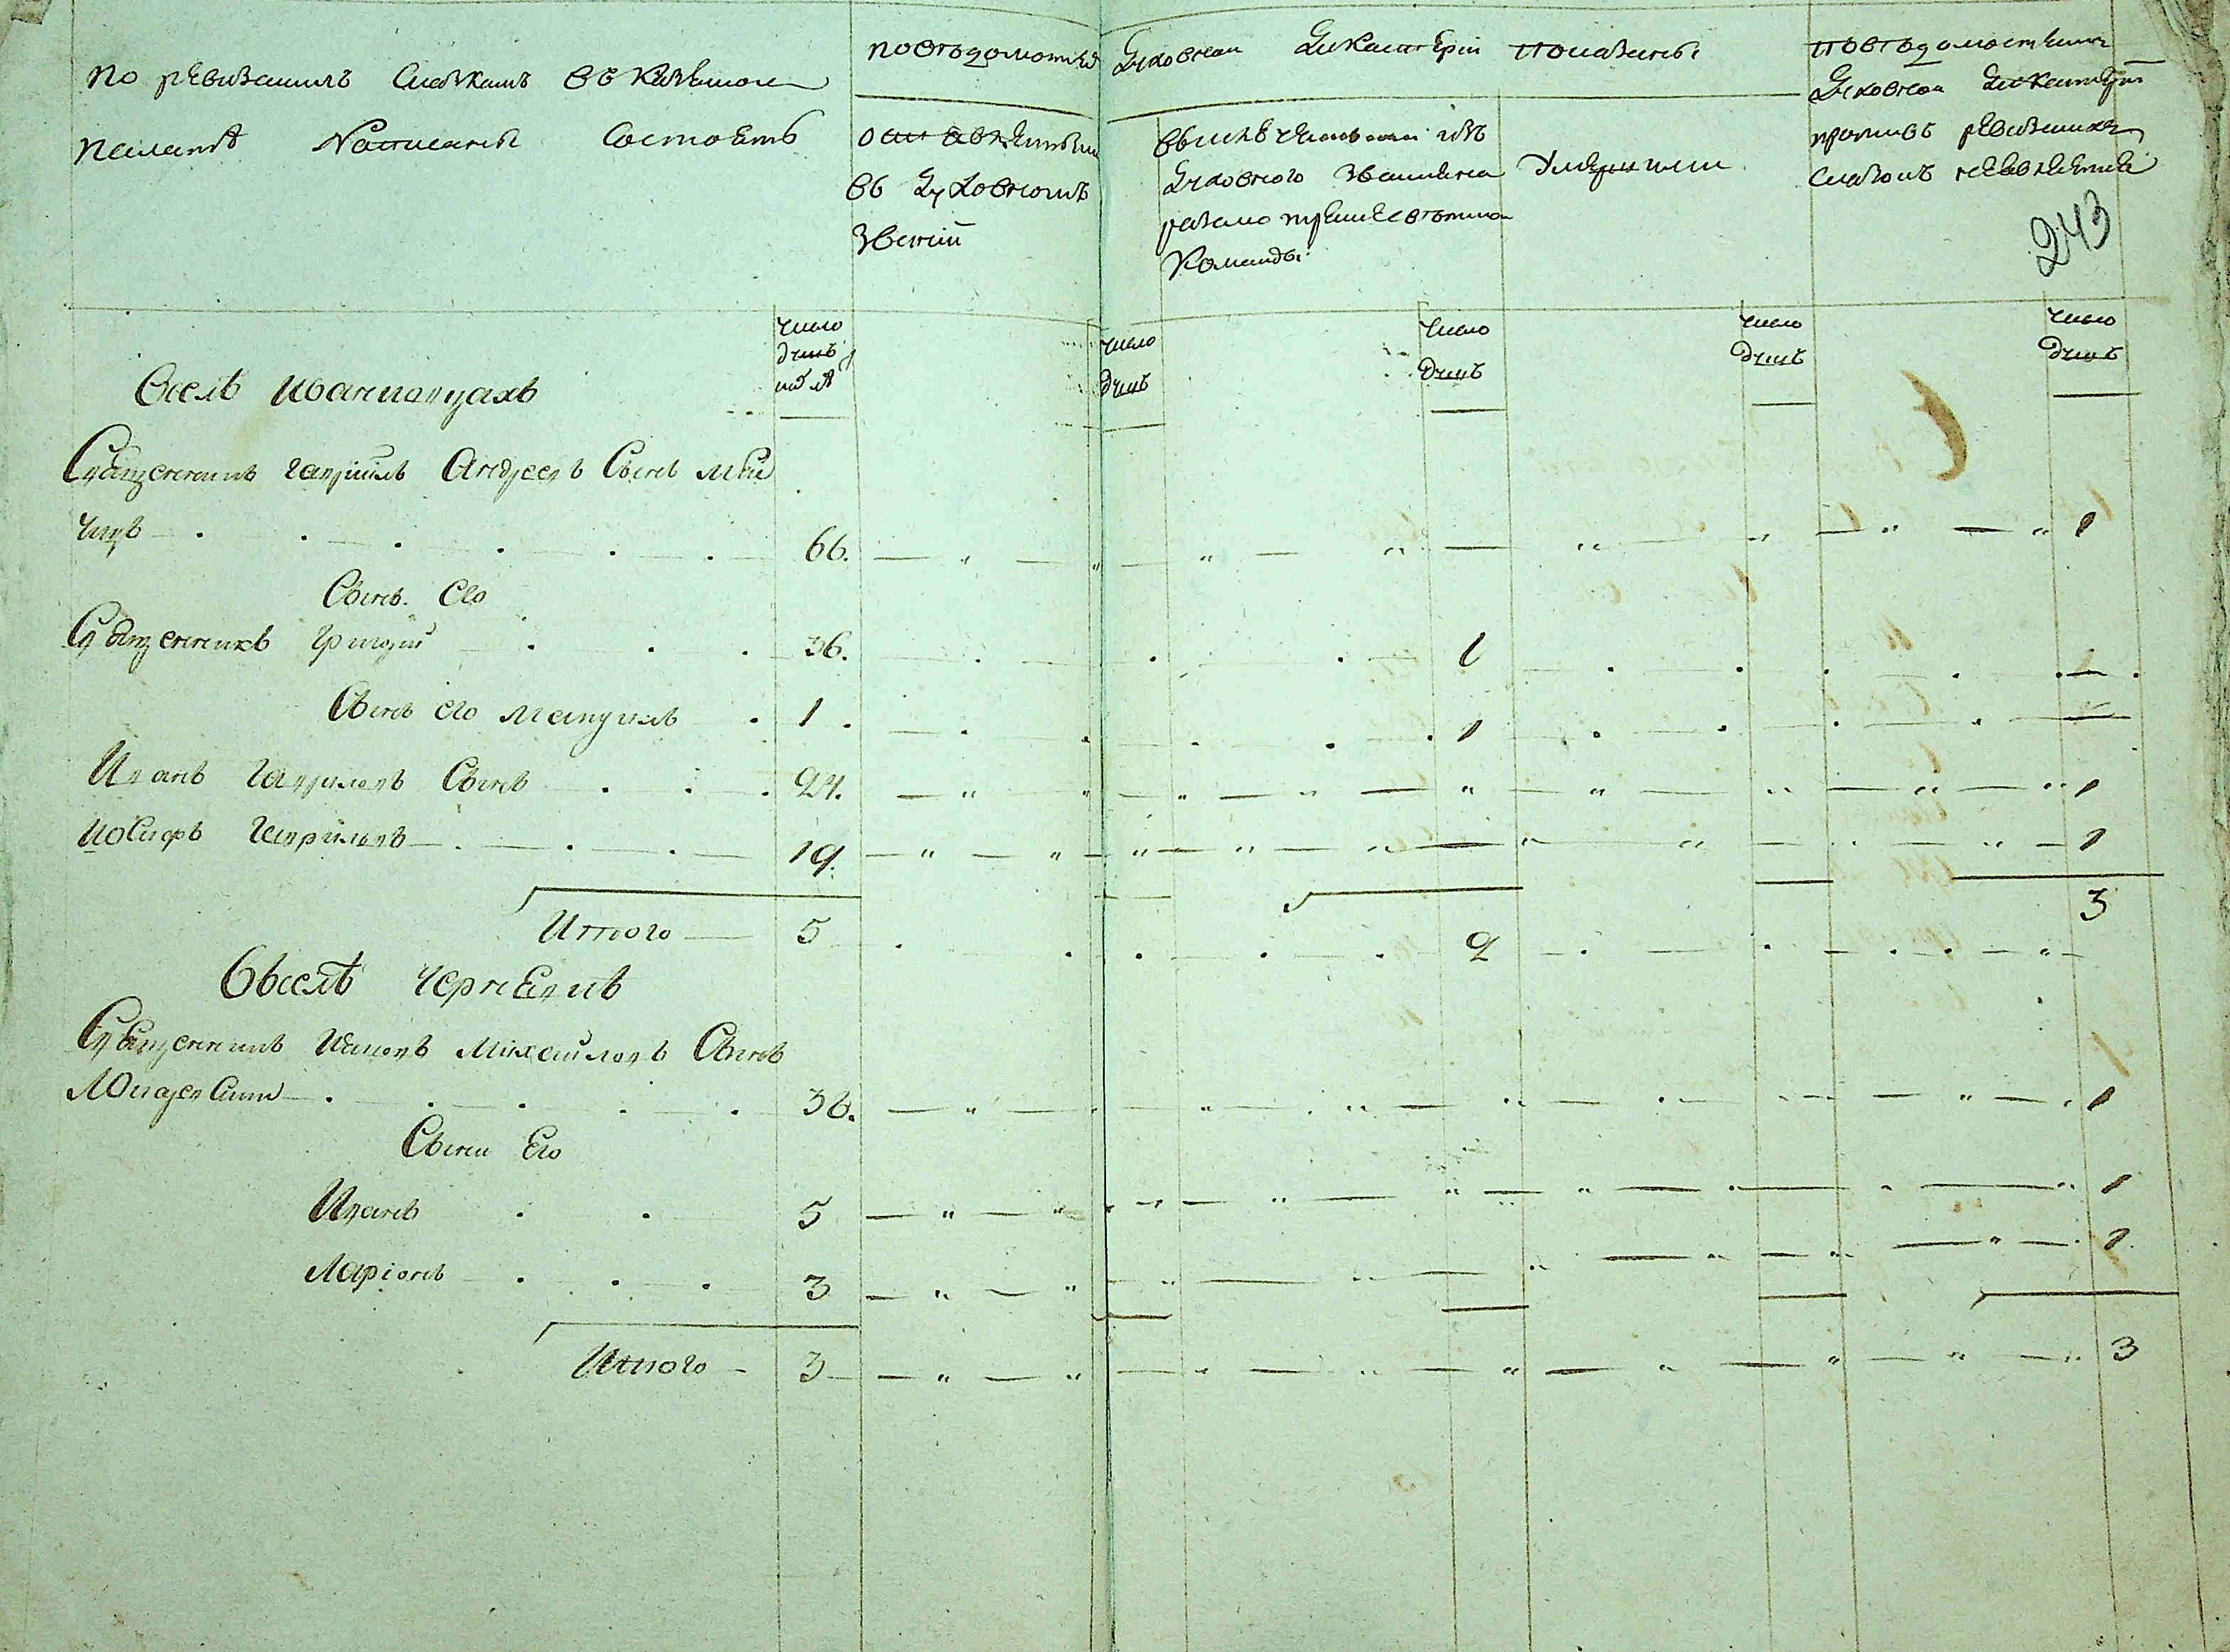 По ревизскимъ Сказкамъ въ Казенной
палатѣ Написаны Состоятъ
по вѣдомостямъ Духовной Дикастеріи показаны
оставленными
въ Духовномъ
Званіи
изъ
Духовного Званія на
Команды
Умершими
по вѣдомостямъ
Духовной Дикастеріи
противъ ревизскихъ
сказокъ неявленны
243
число
душъ
лѣта
число
душъ
число
душъ
число
душъ
число
душъ
Въ селѣ Иванковцахъ
Священникъ Гавріилъ Андреевъ Сынъ
66. 1
Сынъ Его
Священникъ Григорій 36. 1
Сынъ его Мануилъ 1. 1
Иванъ Гавриловъ Сынъ 24. 1
Иосифъ Гавриловъ 19. 1
Итого 5 2 3
Въ селѣ
Священникъ Михайловъ Сынъ
36. 1
Сыни Его
Иванъ 5 1
Ларіонъ 3 1
Итого 3 3